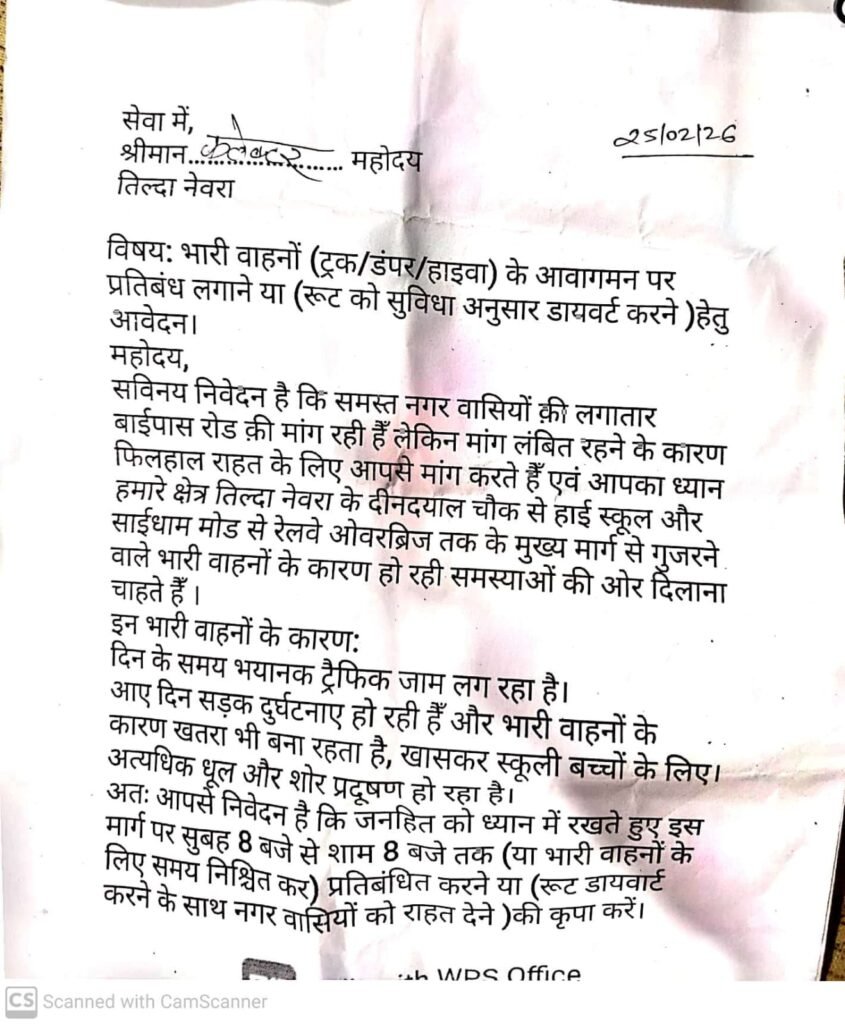 सेवा में,
25/02/26
श्रीमान..कलेक्टर...... महोदय
तिल्दा नेवरा
विषय: भारी वाहनों (ट्रक/डंपर/हाइवा) के आवागमन पर
प्रतिबंध लगाने या (रूट को सुविधा अनुसार डायवर्ट करने )हेतु
आवेदन।
महोदय,
सविनय निवेदन है कि समस्त नगर वासियों क़ी लगातार
बाईपास रोड क़ी मांग रही हैँ लेकिन मांग लंबित रहने के कारण
फिलहाल राहत के लिए आपसे मांग करते हैँ एवं आपका ध्यान
हमारे क्षेत्र तिल्दा नेवरा के दीनदयाल चौक से हाई स्कूल और
साईधाम मोड से रेलवे ओवरब्रिज तक के मुख्य मार्ग से गुजरने
वाले भारी वाहनों के कारण हो रही समस्याओं की ओर दिलाना
चाहते हैँ ।
इन भारी वाहनों के कारण:
दिन के समय भयानक ट्रैफिक जाम लग रहा है।
आए दिन सड़क दुर्घटनाए हो रही हैँ और भारी वाहनों के
कारण खतरा भी बना रहता है, खासकर स्कूली बच्चों के लिए।
अत्यधिक धूल और शोर प्रदूषण हो रहा है।
अतः आपसे निवेदन है कि जनहित को ध्यान में रखते हुए इस
मार्ग पर सुबह 8 बजे से शाम 8 बजे तक (या भारी वाहनों के
लिए समय निश्चित कर) प्रतिबंधित करने या (रूट डायवार्ट
करने के साथ नगर वासियों को राहत देने )की कृपा करें।
WPS Office
CS Scanned with CamScanner